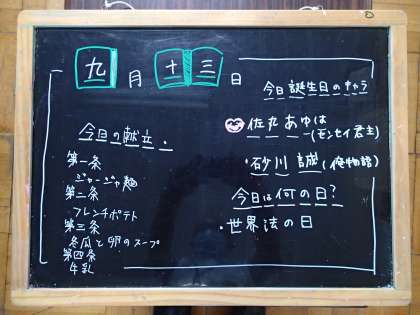 九月十三日
今日の献立.
第一条
ジャージャ麺
第二条
フレンチポテト
第三条
冬瓜と卵のスープ
第四条
牛乳
今日誕生日のキャラ
佐丸あゆは
(モンセイ君主)
・石少川誠(俺物語)
今日は何の日?
・世界法の日